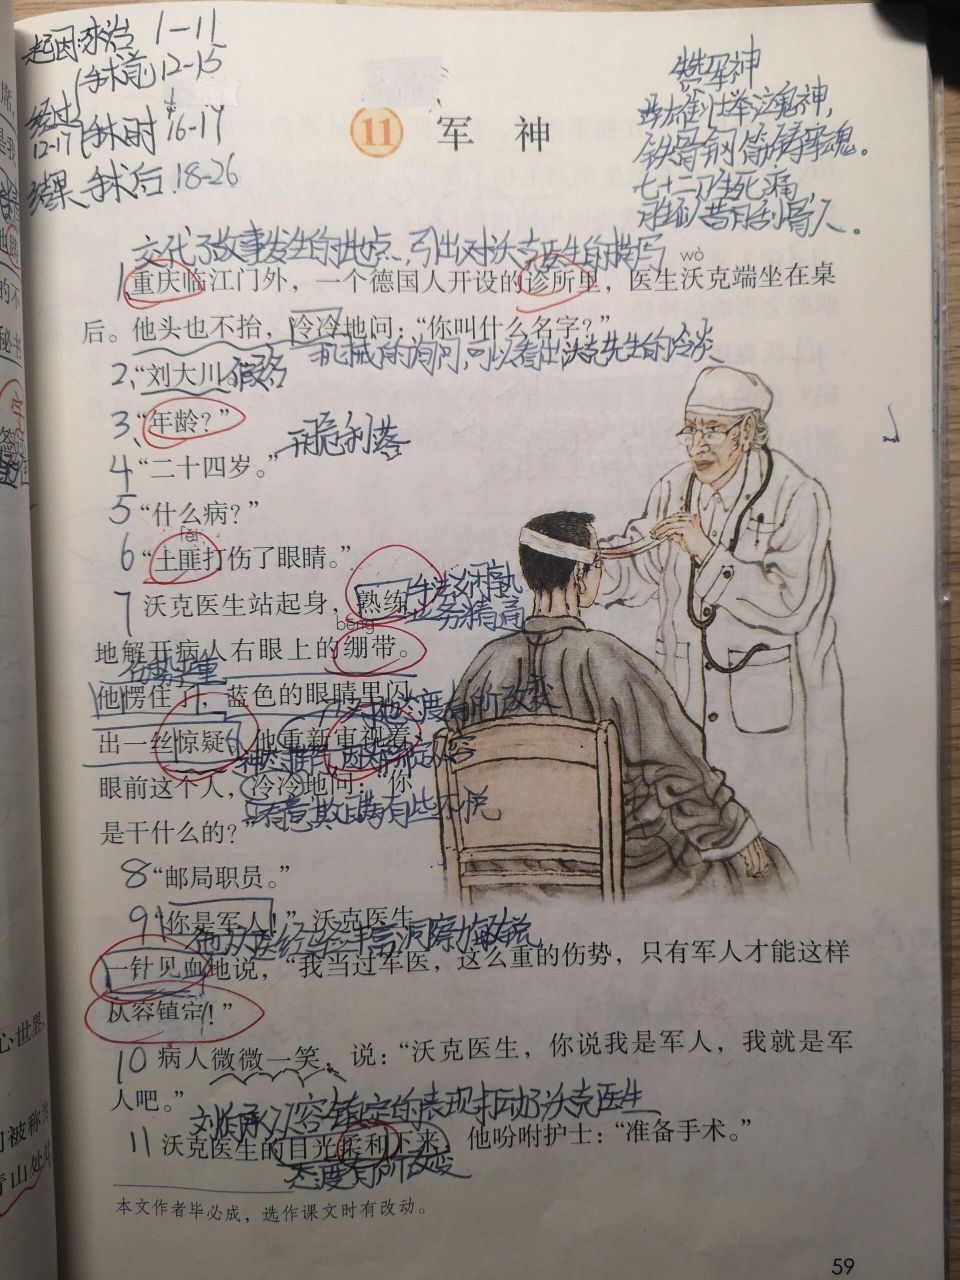 起因:求治 1-11
经过 12-17
手术前 12-15
手术时 16-17
结果 手术后 18-26
赞军神
铁骨钢筋铸军魂。
七十二刀生死痛,
胜似昔日刮骨人。
11 军 神
交代了故事发生的地点,引出对沃克医生的描写
wò
1 重庆临江门外,一个德国人开设的诊所里,医生沃克端坐在桌
后。他头也不抬,冷冷地问:“你叫什么名字?”
机械的询问,可以看出沃克先生的冷淡
2、“刘大川。” 假名
3、“年龄?”
干脆利落
4 “二十四岁。”
5 “什么病?”
fěi
6 “土匪打伤了眼睛。”
7 沃克医生站起身,熟练
手法娴熟
业务精通
bēng
地解开病人右眼上的绷带。
伤势严重
他愣住了,蓝色的眼睛里闪
态度有所改变
出一丝惊疑。他重新审视着
眼前这个人,冷冷地问:“你
有些不悦
是干什么的?”
8 “邮局职员。”
9 “你是军人!”沃克医生
一针见血地说,“我当过军医,这么重的伤势,只有军人才能这样
从容镇定!”
10 病人微微一笑,说:“沃克医生,你说我是军人,我就是军
人吧。”
刘伯承从容镇定的表现打动了沃克医生
11 沃克医生的目光柔和下来,他吩咐护士:“准备手术。”
态度有所改变
本文作者毕必成,选作课文时有改动。
59